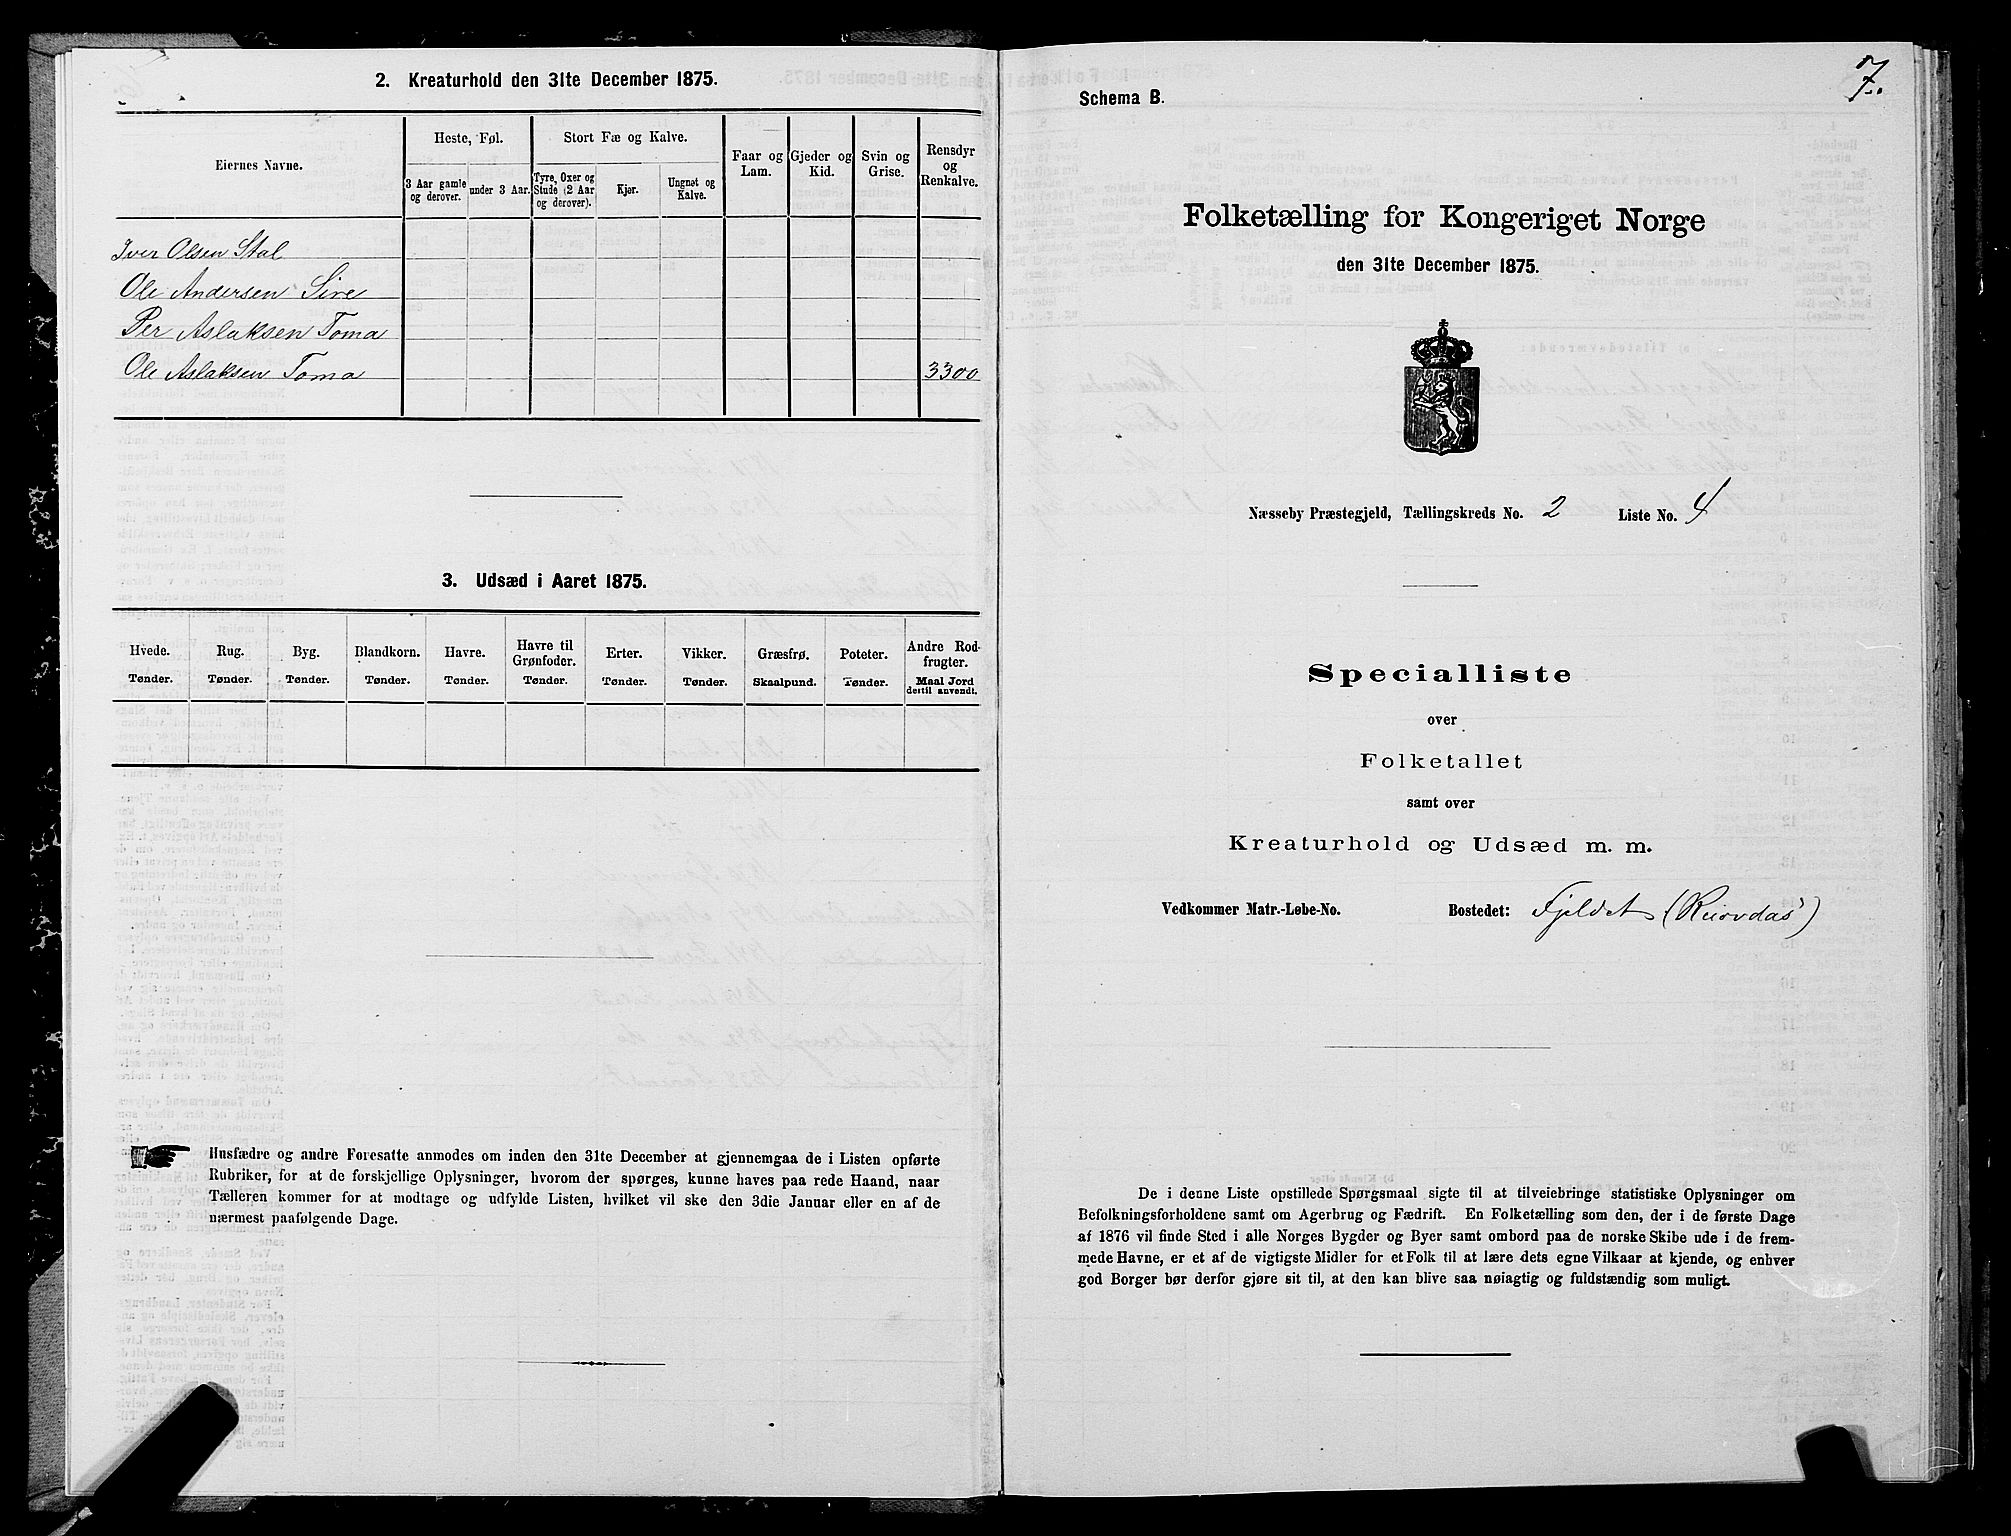 2. Kreaturhold den 31te December 1875.
Eiernes Navne.
Heste, Føl.
3 Aar gamle og derover.
under 3 Aar.
Stort Fæ og Kalve.
Tyre, Oxer og Stude (2 Aar og derover).
Kjør.
Ungnøt og Kalve.
Faar og Lam.
Gjeder og Kid.
Svin og Grise.
Rensdyr og Renkalve.
Iver Olsen Stal
Ole Andersen Sire
Per Aslaksen Toma
Ole Aslaksen Toma 3300
3. Udsæd i Aaret 1875.
Hvede. Tønder.
Rug. Tønder.
Byg. Tønder.
Blandkorn. Tønder.
Havre. Tønder.
Havre til Grønfoder. Tønder.
Erter. Tønder.
Vikker. Tønder.
Græsfrø. Skaalpund.
Poteter. Tønder.
Andre Rodfrugter. Maal Jord dertil anvendt.
Husfædre og andre Foresatte anmodes om inden den 31te December at gjennemgaa de i Listen opførte
Rubriker, for at de forskjellige Oplysninger, hvorom der spørges, kunne haves paa rede Haand, naar
Tælleren kommer for at modtage og udfylde Listen, hvilket vil ske den 3die Januar eller en af de
nærmest paafølgende Dage.
7.
Schema B.
Folketælling for Kongeriget Norge
den 31te December 1875.
Næsseby Præstegjeld, Tællingskreds No. 2 Liste No. 4
Specialliste
over
Folketallet
samt over
Kreaturhold og Udsæd m. m.
Vedkommer Matr.-Løbe-No. Bostedet: Fjeldet
De i denne Liste opstillede Spørgsmaal sigte til at tilveiebringe statistiske Oplysninger om
Befolkningsforholdene samt om Agerbrug og Fædrift. En Folketælling som den, der i de første Dage
af 1876 vil finde Sted i alle Norges Bygder og Byer samt ombord paa de norske Skibe ude i de frem-
mede Havne, er et af de vigtigste Midler for et Folk til at lære dets egne Vilkaar at kjende, og enhver
god Borger bør derfor gjøre sit til, at den kan blive saa nøiagtig og fuldstændig som muligt.